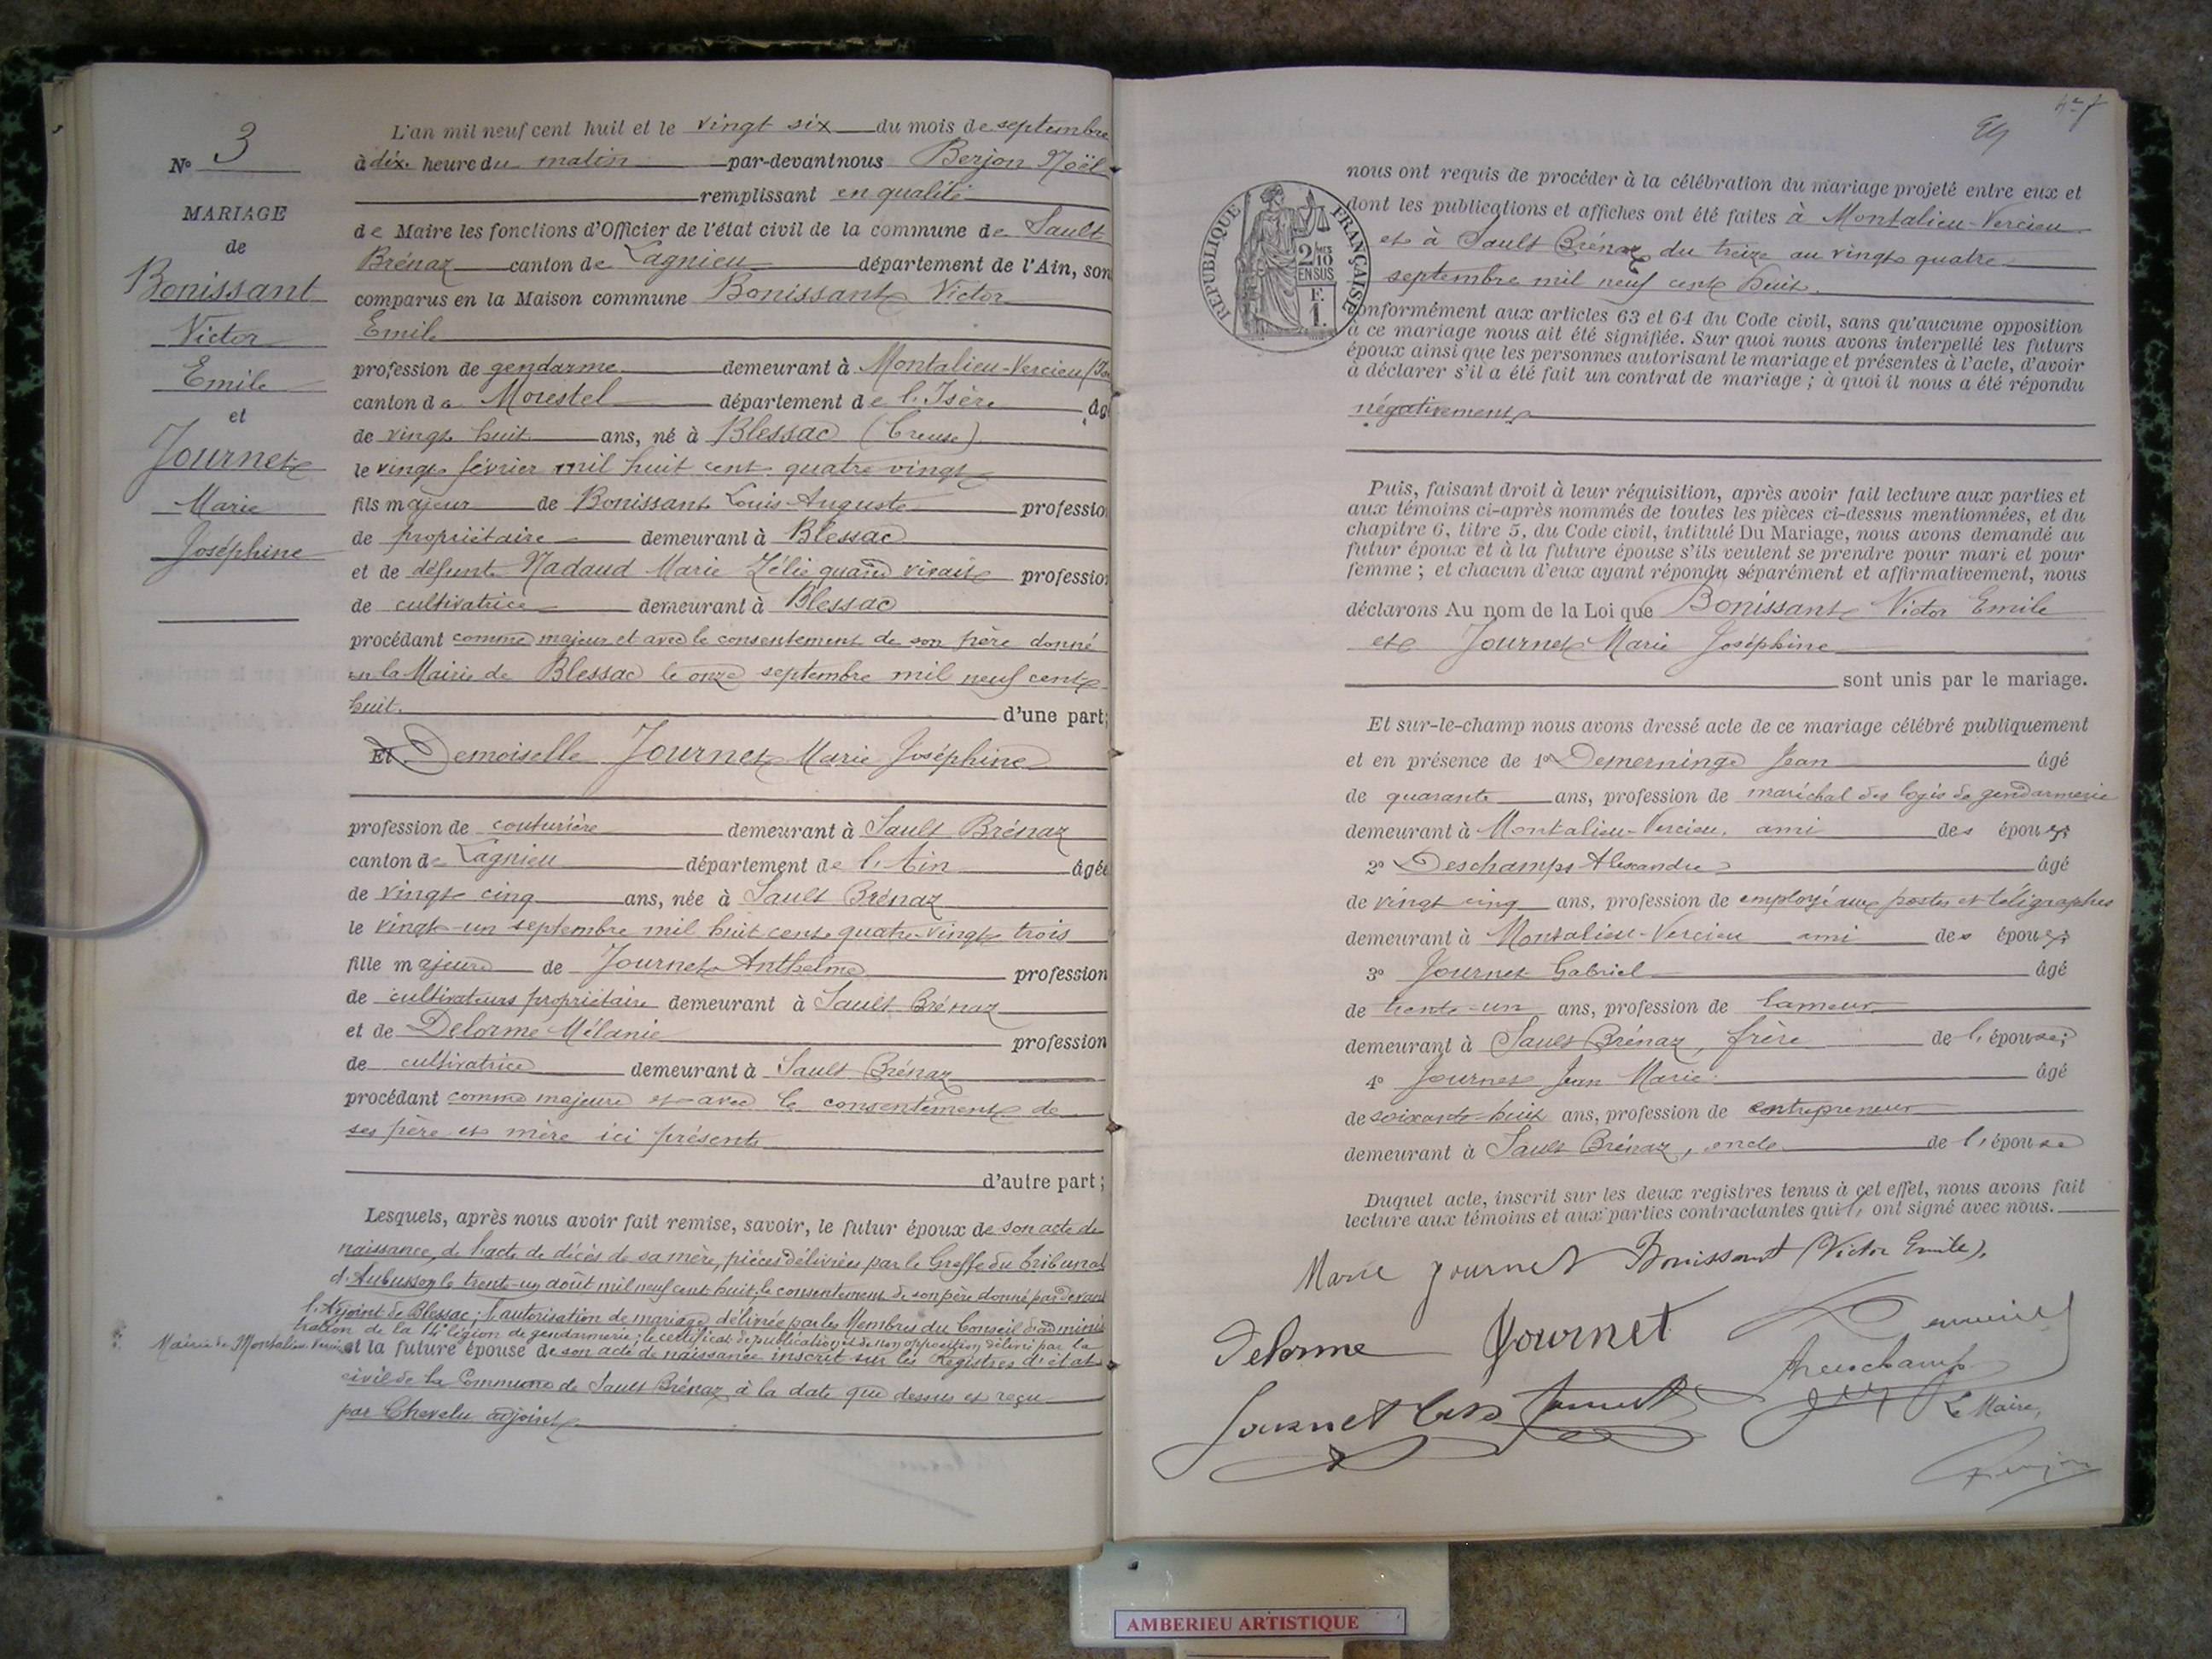 N° 3
MARIAGE
de
Bonissant
Victor
Emile
et
Journet
Marie
Joséphine
L'an mil neuf cent huit et le vingt six du mois de septembre
à dix heure du matin par-devant nous Berjon Noël
remplissant en qualité
de Maire les fonctions d'Officier de l'état civil de la commune de Sault
Brénaz canton de Lagnieu département de l'Ain, son
comparus en la Maison commune Bonissant Victor
Emile
profession de gendarme demeurant à Montalieu-Vercieu
canton de Morestel département de l'Isère âg
de vingt huit ans, né à Blessac (Creuse)
le vingt février mil huit cent quatre vingt
fils majeur de Bonissant Louis Auguste professio
de propriétaire demeurant à Blessac
et de défunte Nadaud Marie Zélie quand vivait profession
de cultivatrice demeurant à Blessac
procédant comme majeur et avec le consentement de son père donné
en la Mairie de Blessac le onze septembre mil neuf cent
huit. d'une part;
Et Demoiselle Journet Marie Joséphine
profession de couturière demeurant à Sault Brénaz
canton de Lagnieu département de l'Ain âgée
de vingt cinq ans, née à Sault Brénaz
le vingt-un septembre mil huit cent quatre-vingt trois
fille majeure de Journet Anthelme profession
de cultivateurs propriétaire demeurant à Sault Brénaz
et de Delorme Mélanie profession
de cultivatrice demeurant à Sault Brénaz
procédant comme majeure et avec le consentement de
ses père et mère ici présents
d'autre part;
Lesquels, après nous avoir fait remise, savoir, le futur époux de son acte de
naissance, de l'acte de décès de sa mère, pièces délivrées par le Greffe du Tribunal
d'Aubusson le trente-un août mil neuf cent huit; le consentement de son père donné par devant
l'Adjoint de Blessac; l'autorisation de mariage délivrée par les Membres du Conseil d'adminis
tration de la 14e légion de gendarmerie; le certificat de publication et de non opposition délivré par la
Mairie de Montalieu Vercieu et la future épouse de son acte de naissance inscrit sur les Registres d'état
civil de la Commune de Sault Brénaz à la date que dessus et reçu
par Chevelu adjoint
nous ont requis de procéder à la célébration du mariage projeté entre eux et
dont les publications et affiches ont été faites à Montalieu-Vercieu
et à Sault Brénaz du treize au vingt quatre
septembre mil neuf cent huit.
REPUBLIQUE FRANÇAISE
2/10
EN SUS
F.
1.
conformément aux articles 63 et 64 du Code civil, sans qu'aucune opposition
à ce mariage nous ait été signifiée. Sur quoi nous avons interpellé les futurs
époux ainsi que les personnes autorisant le mariage et présentes à l'acte, d'avoir
à déclarer s'il a été fait un contrat de mariage; à quoi il nous a été répondu
négativement
Puis, faisant droit à leur réquisition, après avoir fait lecture aux parties et
aux témoins ci-après nommés de toutes les pièces ci-dessus mentionnées, et du
chapitre 6, titre 5, du Code civil, intitulé Du Mariage, nous avons demandé au
futur époux et à la future épouse s'ils veulent se prendre pour mari et pour
femme; et chacun d'eux ayant répondu séparément et affirmativement, nous
déclarons Au nom de la Loi que Bonissant Victor Emile
et Journet Marie Joséphine
sont unis par le mariage.
Et sur-le-champ nous avons dressé acte de ce mariage célébré publiquement
et en présence de 1° Demerninge Jean âgé
de quarante ans, profession de maréchal des logis de gendarmerie
demeurant à Montalieu-Vercieu, ami des époux;
2° Deschamps Alexandre âgé
de vingt cinq ans, profession de employé aux postes et télégraphes
demeurant à Montalieu-Vercieu ami des époux;
3° Journet Gabriel âgé
de trente-un ans, profession de
demeurant à Sault Brénaz, frère de l'épouse;
4° Journet Jean Marie âgé
de soixante-huit ans, profession de entrepreneur
demeurant à Sault Brénaz, oncle de l'épouse
Duquel acte, inscrit sur les deux registres tenus à cet effet, nous avons fait
lecture aux témoins et aux parties contractantes qui ont signé avec nous.
Marie Journet Bonissant (Victor Emile).
Delorme Journet
Deschamps
Journet Journet Le Maire,
Berjon
AMBERIEU ARTISTIQUE